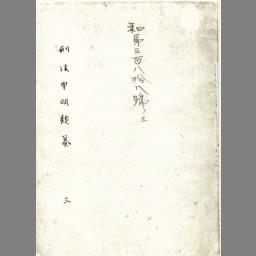 和第三百八拾八號ノ三
刑法申明類纂 三